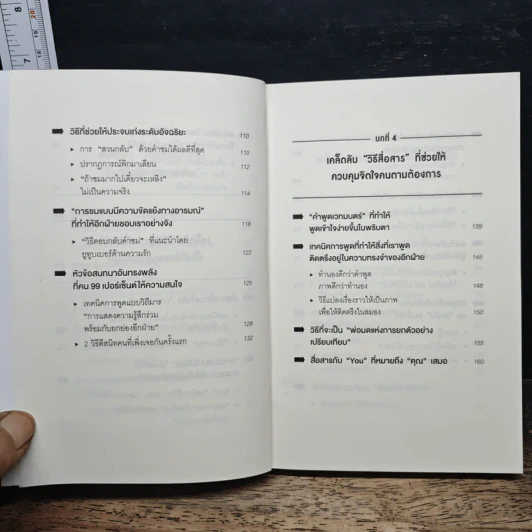 วิธีที่ช่วยให้ประจบเก่งระดับอัจฉริยะ 110
การ "สวนกลับ" ด้วยคำชมได้ผลดีที่สุด 110
ปรากฏการณ์พิกมาเลียน 112
"ถ้าชมมากไปเดี๋ยวจะเหลิง"
ไม่เป็นความจริง 114
"การชมแบบมีความขัดแย้งทางอารมณ์"
ที่ทำให้อีกฝ่ายชอบเราอย่างจัง 118
"วิธีตอบกลับคำชม" ที่แนะนำโดย
ยูทูบเบอร์ด้านความรัก 122
หัวข้อสนทนาอันทรงพลัง
ที่คน 99 เปอร์เซ็นต์ให้ความสนใจ 125
เทคนิคการพูดแบบวิถีมาร
"การแสดงความรู้สึกร่วม
พร้อมกับยกย่องอีกฝ่าย" 128
2 วิธีตีสนิทคนที่เพิ่งเจอกันครั้งแรก 132
บทที่ 4
เคล็ดลับ "วิธีสื่อสาร" ที่ช่วยให้
ควบคุมจิตใจคนตามต้องการ
"คำพูดเวทมนตร์" ที่ทำให้
พูดเข้าใจง่ายขึ้นในพริบตา 139
เทคนิคการพูดที่ทำให้สิ่งที่เราพูด
ติดตรึงอยู่ในความทรงจำของอีกฝ่าย 145
ทำนองดีกว่าคำพูด
ภาพดีกว่าทำนอง 148
วิธีแปลงเรื่องราวให้เป็นภาพ
เพื่อให้ติดตรึงในสมอง 150
วิธีที่จะเป็น "พ่อมดแห่งการยกตัวอย่าง
เปรียบเทียบ" 155
สื่อสารกับ "You" ที่หมายถึง "คุณ" เสมอ 160
8
7
20
19
18